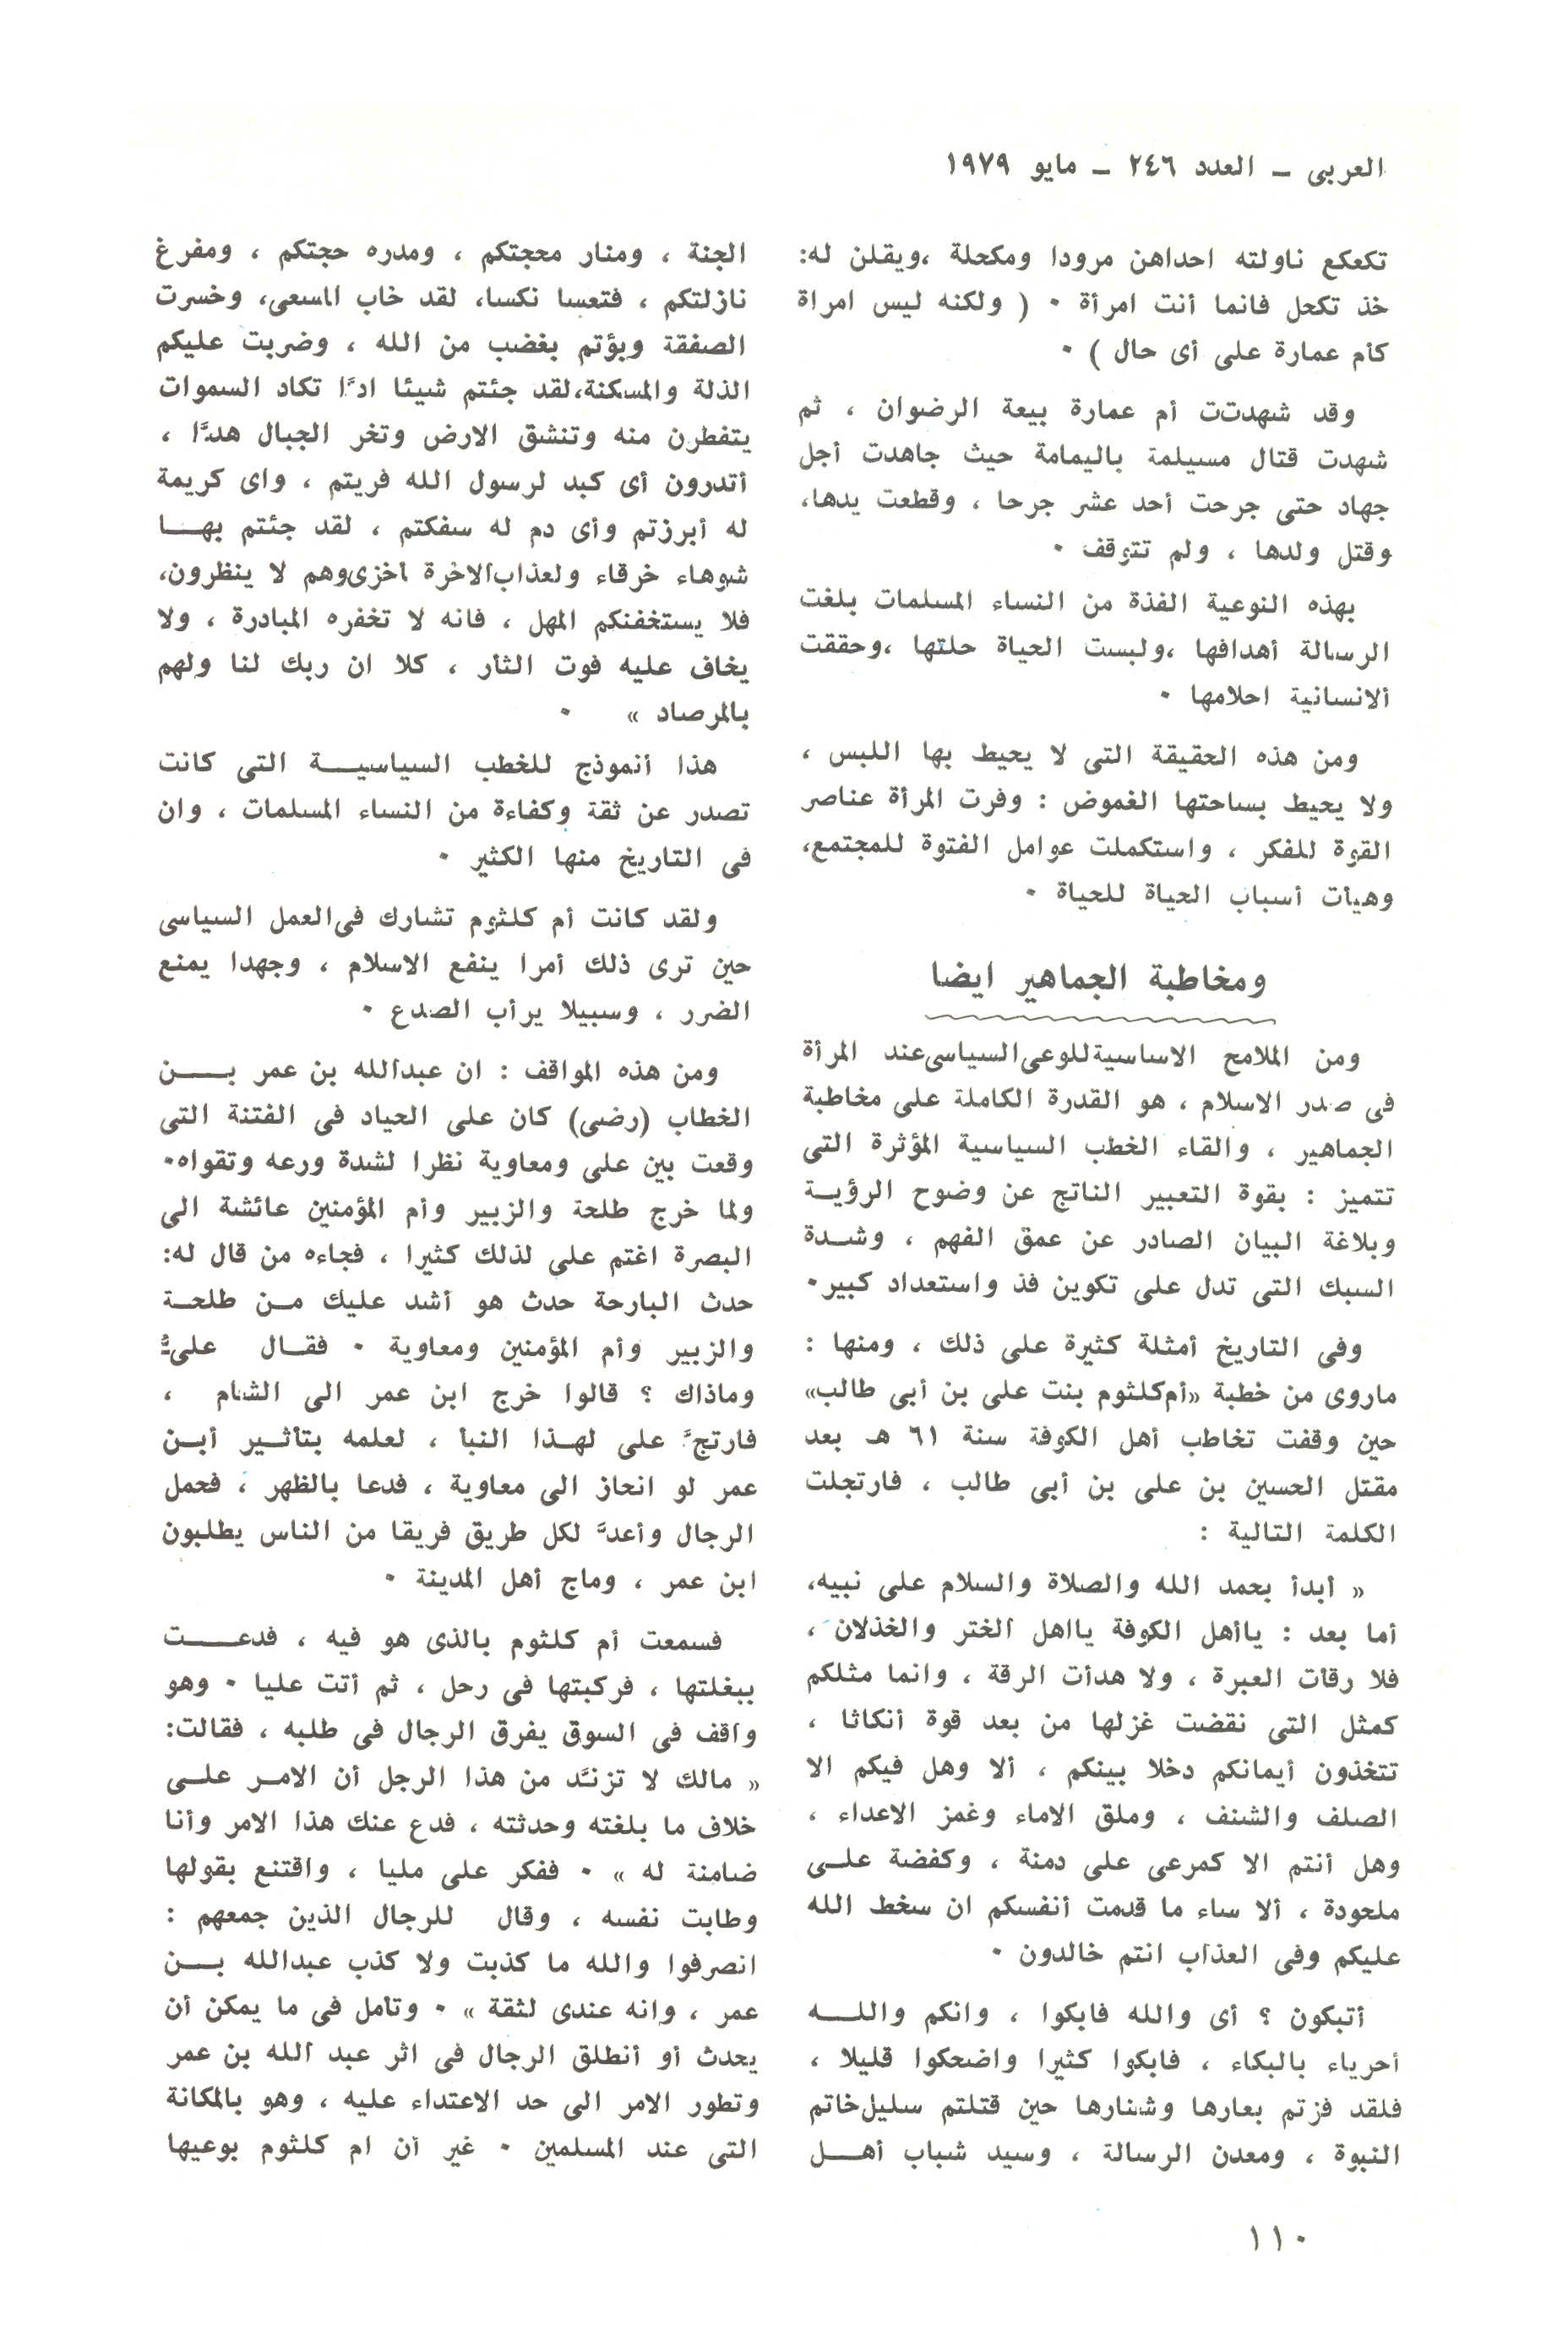 العربى ــ العدد ٢٤٦ ــ مايو ١٩٧٩
تكعكع ناولته احداهن مرودا ومكحلة ،ويقلن له:
خذ تكحل فانما أنت امرأة ٠ ( ولكنه ليس امراة
كأم عمارة على أى حال ) ٠
وقد شهدتت أم عمارة بيعة الرضوان ، ثم
شهدت قتال مسيلمة باليمامة حيث جاهدت أجل
جهاد حتى جرحت أحد عشر جرحا ، وقطعت يدها،
وقتل ولدها ، ولم تتوقف ٠
بهذه النوعية الفذة من النساء المسلمات بلغت
الرسالة أهدافها ،ولبست الحياة حلتها ،وحققت
ألانسانية احلامها ٠
ومن هذه الحقيقة التى لا يحيط بها اللبس ،
ولا يحيط بساحتها الغموض : وفرت المرأة عناصر
القوة للفكر ، واستكملت عوامل الفتوة للمجتمع،
وهيأت أسباب الحياة للحياة ٠
ومخاطبة الجماهير ايضا
ومن الملامح الاساسية للوعى السياسى عند المرأة
فى صدر الاسلام ، هو القدرة الكاملة على مخاطبة
الجماهير ، والقاء الخطب السياسية المؤثرة التى
تتميز : بقوة التعبير الناتج عن وضوح الرؤيــة
وبلاغة البيان الصادر عن عمق الفهم ، وشــدة
السبك التى تدل على تكوين فذ واستعداد كبير٠
وفى التاريخ أمثلة كثيرة على ذلك ، ومنها :
ماروى من خطبة «أم كلثوم بنت على بن أبى طالب»
حين وقفت تخاطب أهل الكوفة سنة ٦١ هـ بعد
مقتل الحسين بن على بن أبى طالب ، فارتجلت
الكلمة التالية :
« أبدأ بحمد الله والصلاة والسلام على نبيه،
أما بعد : ياأهل الكوفة يااهل الختر والخذلان ،
فلا رقأت العبرة ، ولا هدأت الرقة ، وانما مثلكم
كمثل التى نقضت غزلها من بعد قوة أنكاثا ،
تتخذون أيمانكم دخلا بينكم ، ألا وهل فيكم الا
الصلف والشنف ، وملق الاماء وغمز الاعداء ،
وهل أنتم الا كمرعى على دمنة ، وكفضة علــى
ملحودة ، ألا ساء ما قدمت أنفسكم ان سخط الله
عليكم وفى العذاب انتم خالدون ٠
أتبكون ؟ أى والله فابكوا ، وانكم واللــه
أحرياء بالبكاء ، فابكوا كثيرا واضحكوا قليلا ،
فلقد فزتم بعارها وشنارها حين قتلتم سليل خاتم
النبوة ، ومعدن الرسالة ، وسيد شباب أهــل
الجنة ، ومنار محجتكم ، ومدره حجتكم ، ومفرغ
نازلتكم ، فتعسا نكسا، لقد خاب السعى، وخسرت
الصفقة وبؤتم بغضب من الله ، وضربت عليكم
الذلة والمسكنة،لقد جئتم شيئا ادًا تكاد السموات
يتفطرن منه وتنشق الارض وتخر الجبال هدًا ،
أتدرون أى كبد لرسول الله فريتم ، واى كريمة
له أبرزتم وأى دم له سفكتم ، لقد جئتم بهــا
شوهاء خرقاء ولعذاب الاخرة أخزى وهم لا ينظرون،
فلا يستخفنكم المهل ، فانه لا تخفره المبادرة ، ولا
يخاف عليه فوت الثأر ، كلا ان ربك لنا ولهم
بالمرصاد » ٠
هذا أنموذج للخطب السياسيــة التى كانت
تصدر عن ثقة وكفاءة من النساء المسلمات ، وان
فى التاريخ منها الكثير ٠
ولقد كانت أم كلثوم تشارك فى العمل السياسى
حين ترى ذلك أمرا ينفع الاسلام ، وجهدا يمنع
الضرر ، وسبيلا يرأب الصدع ٠
ومن هذه المواقف : ان عبدالله بن عمر بــن
الخطاب (رضى) كان على الحياد فى الفتنة التى
وقعت بين على ومعاوية نظرا لشدة ورعه وتقواه٠
ولما خرج طلحة والزبير وأم المؤمنين عائشة الى
البصرة اغتم على لذلك كثيرا ، فجاءه من قال له:
حدث البارحة حدث هو أشد عليك مـن طلحـة
والزبير وأم المؤمنين ومعاوية ٠ فقــال علىٌّ
وماذاك ؟ قالوا خرج ابن عمر الى الشام ،
فارتجَّ على لهــذا النبأ ، لعلمه بتأثــير أبــن
عمر لو انحاز الى معاوية ، فدعا بالظهر ، فحمل
الرجال وأعدَّ لكل طريق فريقا من الناس يطلبون
ابن عمر ، وماج أهل المدينة ٠
فسمعت أم كلثوم بالذى هو فيه ، فدعــت
ببغلتها ، فركبتها فى رحل ، ثم أتت عليا ٠ وهو
واقف فى السوق يفرق الرجال فى طلبه ، فقالت:
« مالك لا تزنَّد من هذا الرجل أن الامـر علــى
خلاف ما بلغته وحدثته ، فدع عنك هذا الامر وأنا
ضامنة له » ٠ ففكر على مليا ، واقتنع بقولها
وطابت نفسه ، وقال للرجال الذين جمعهم :
انصرفوا والله ما كذبت ولا كذب عبدالله بــن
عمر ، وانه عندى لثقة » ٠ وتأمل فى ما يمكن أن
يحدث أو أنطلق الرجال فى اثر عبد الله بن عمر
وتطور الامر الى حد الاعتداء عليه ، وهو بالمكانة
التى عند المسلمين ٠ غير أن ام كلثوم بوعيها
١١٠